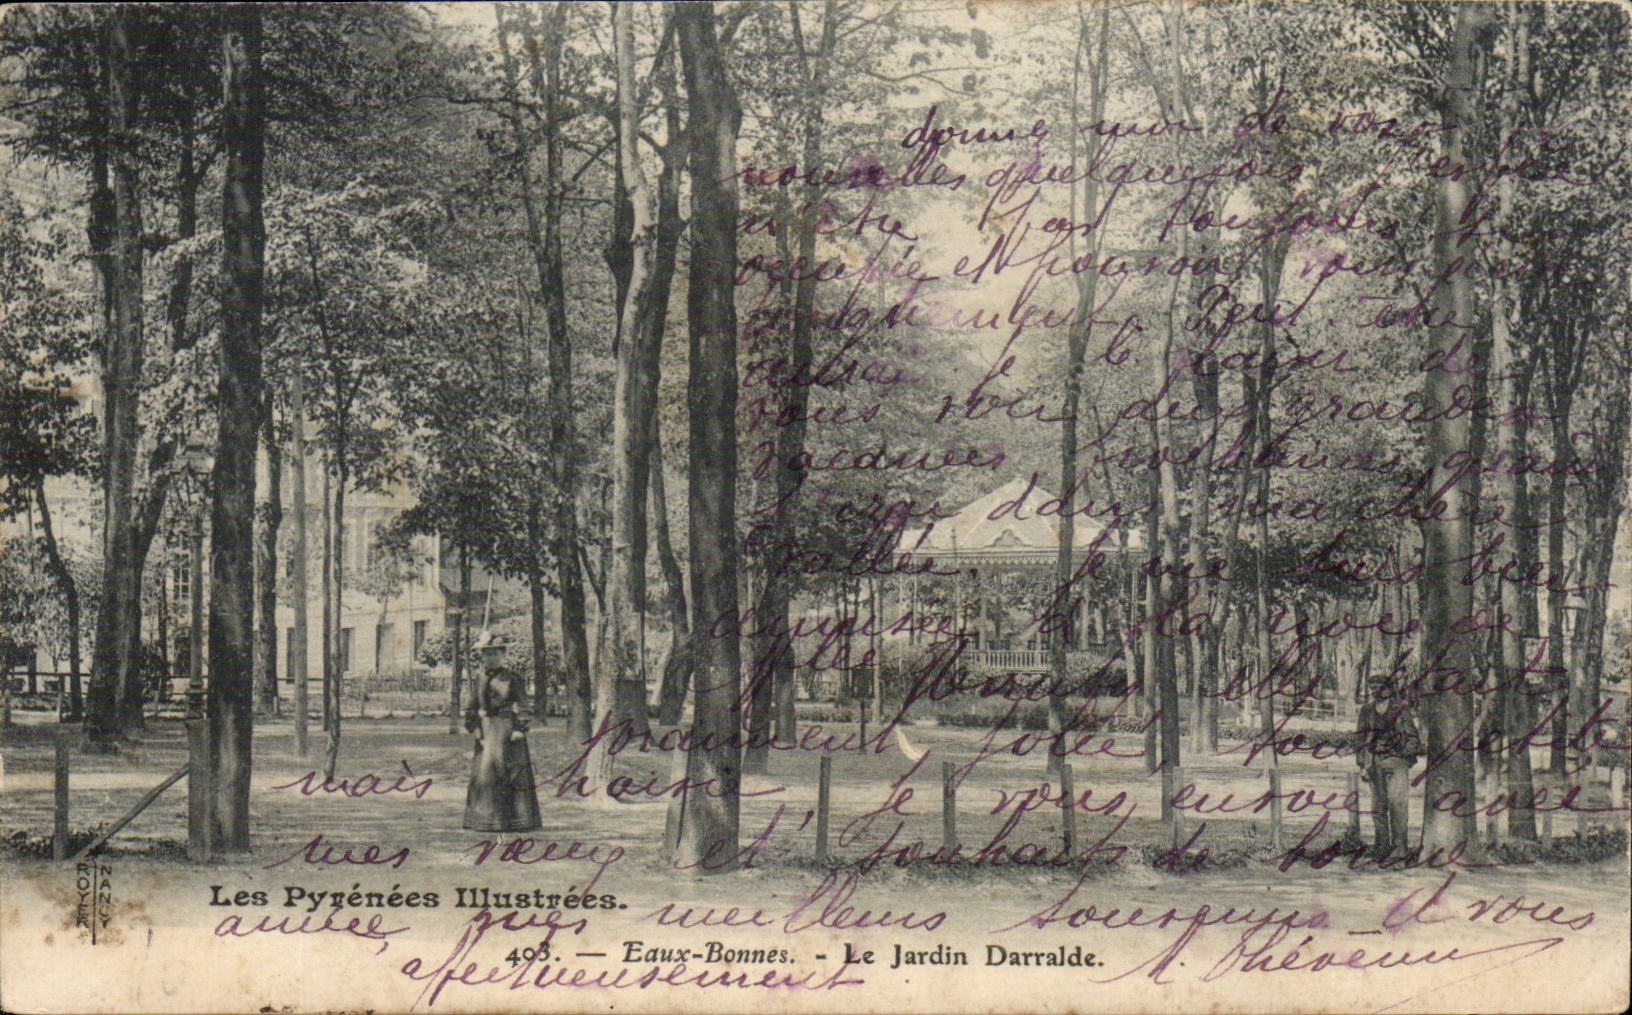 donnez moi de vos
nouvelles quelquefois j'espère
n'être pas toujours si
occupée et pouvoir vous écrire
longuement. Peut-être
aurai je le plaisir de
vous voir aux grandes
vacances prochaines, quand
j'irai dans ma chère
vallée. Je me suis bien
amusée à la noce de
Melle elle était
vraiment jolie, toute petite
mais choisie, Je vous envoie avec
mes vœux et souhaits de bonne
Les Pyrénées Illustrées.
année, mes meilleurs souvenirs à vous
403. — Eaux-Bonnes. - Le Jardin Darralde.
affectueusement
ROYER NANCY